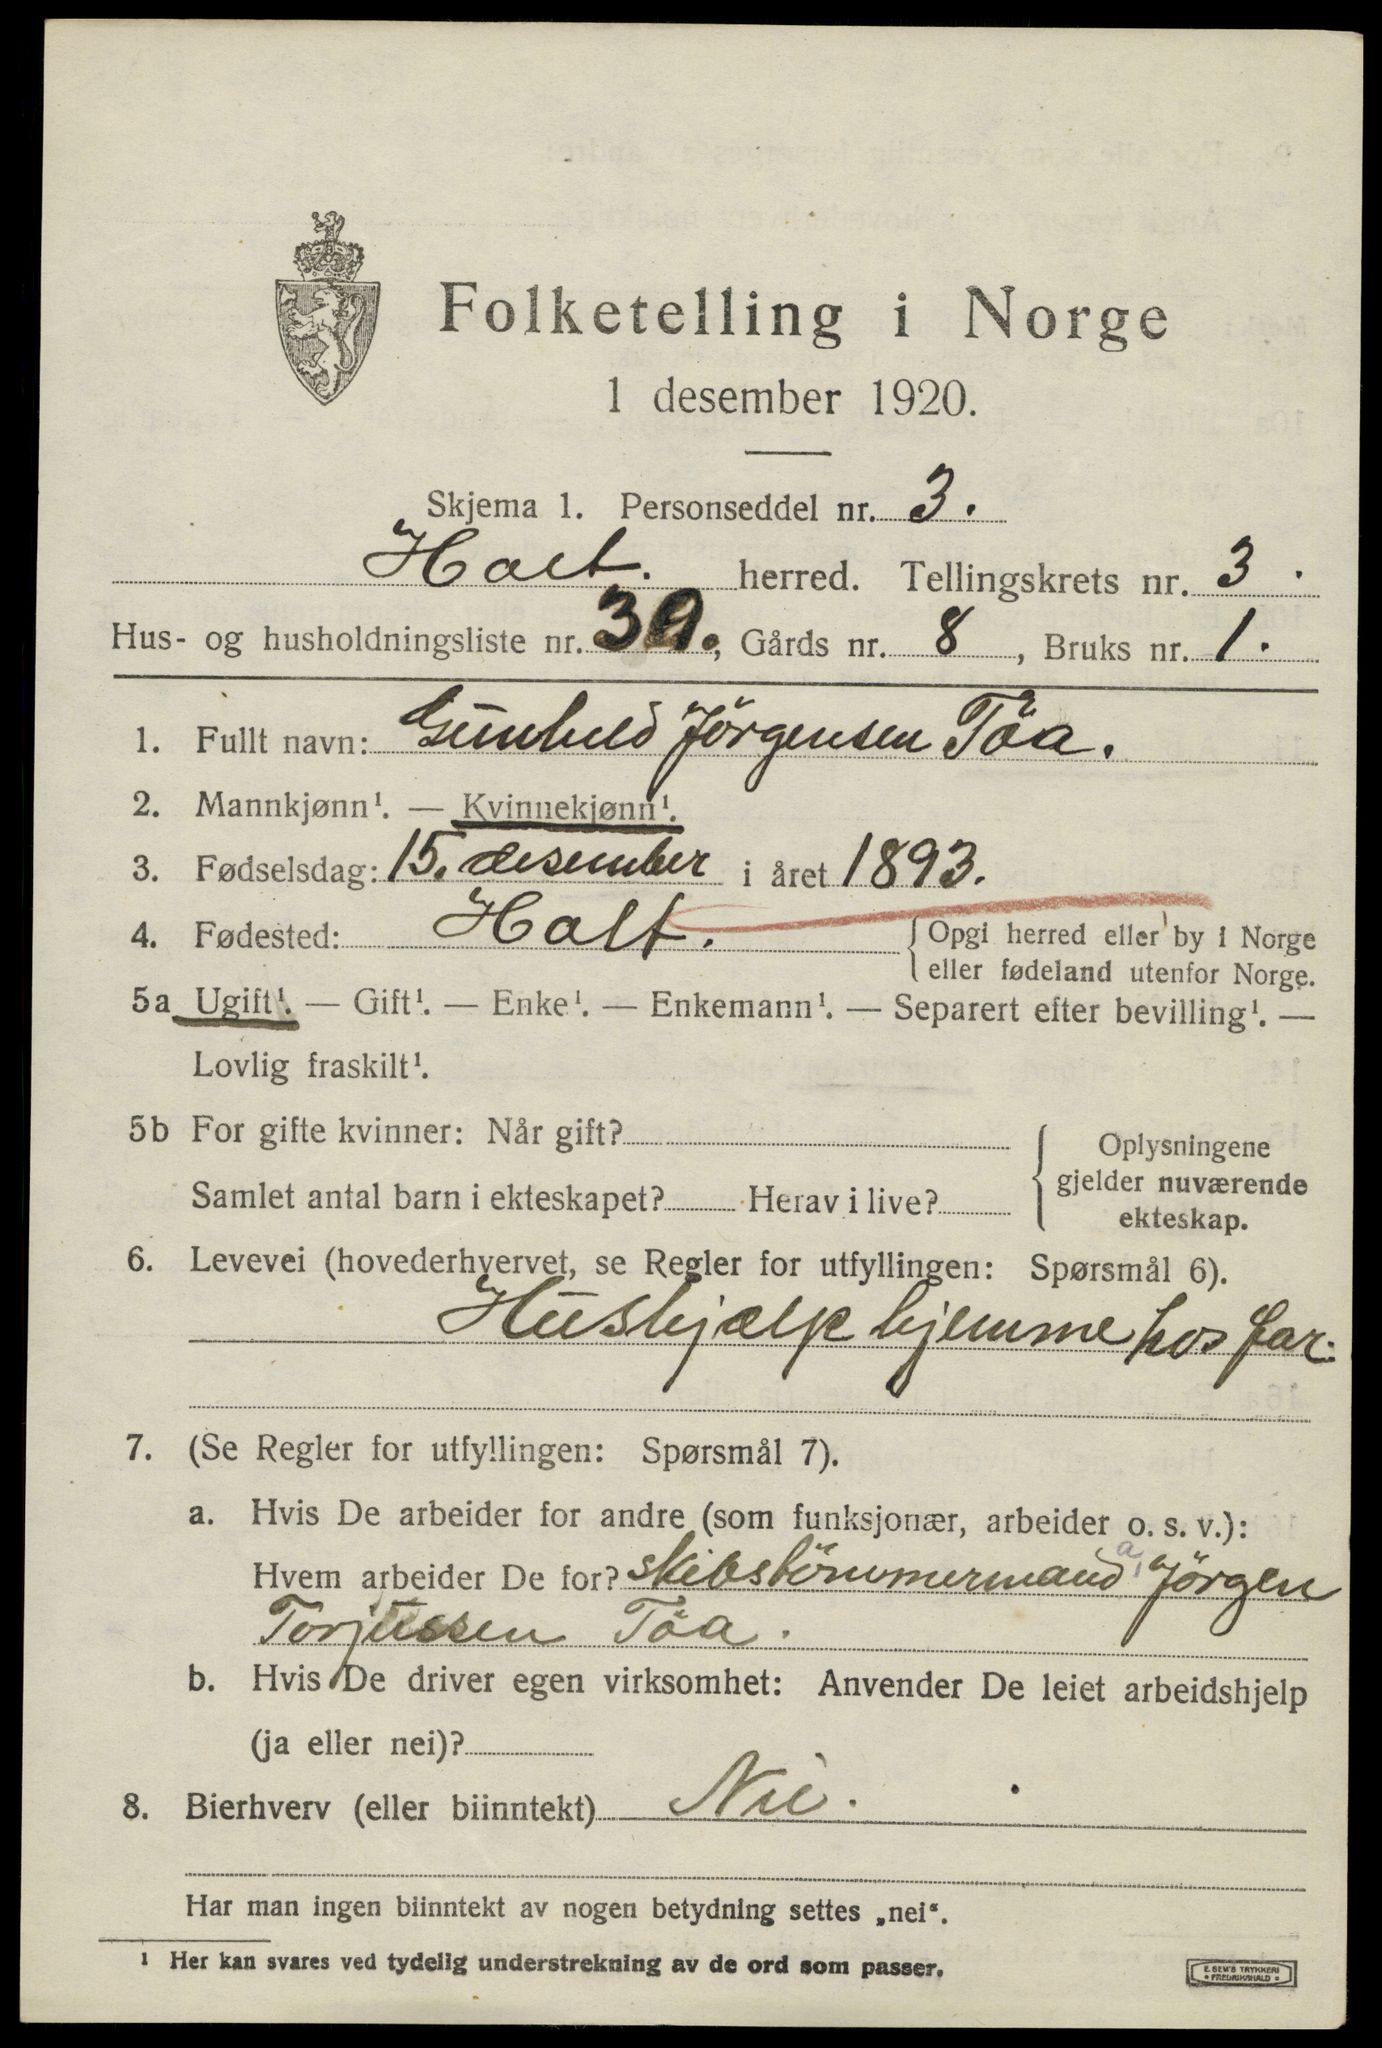 Folketelling i Norge
1 desember 1920.
Skjema 1. Personseddel nr. 3.
Holt. herred. Tellingskrets nr. 3.
Hus- og husholdningsliste nr. 39., Gårds nr. 8, Bruks nr. 1.
1. Fullt navn: Gunhild Jörgensen Töa.
2. Mannkjønn¹. — Kvinnekjønn¹.
3. Fødselsdag: 15. desember i året 1893.
4. Fødested: Holt. { Opgi herred eller by i Norge
eller fødeland utenfor Norge.
5a Ugift¹. — Gift¹. — Enke¹. — Enkemann¹. — Separert efter bevilling¹. —
Lovlig fraskilt¹.
5b For gifte kvinner: Når gift?
Samlet antal barn i ekteskapet? Herav i live?
{ Oplysningene
gjelder nuværende
ekteskap.
6. Levevei (hovederhvervet, se Regler for utfyllingen: Spørsmål 6).
Hushjælp hjemme hos far.
7. (Se Regler for utfyllingen: Spørsmål 7).
a. Hvis De arbeider for andre (som funksjonær, arbeider o. s. v.):
Hvem arbeider De for? skibstömmermand Jörgen
Torjussen Töa.
b. Hvis De driver egen virksomhet: Anvender De leiet arbeidshjelp
(ja eller nei)?
8. Bierhverv (eller biinntekt) Nei.
Har man ingen biinntekt av nogen betydning settes „nei“.
¹ Her kan svares ved tydelig understrekning av de ord som passer.
E. SEM'S TRYKKERI
• FREDRIKSHALD •